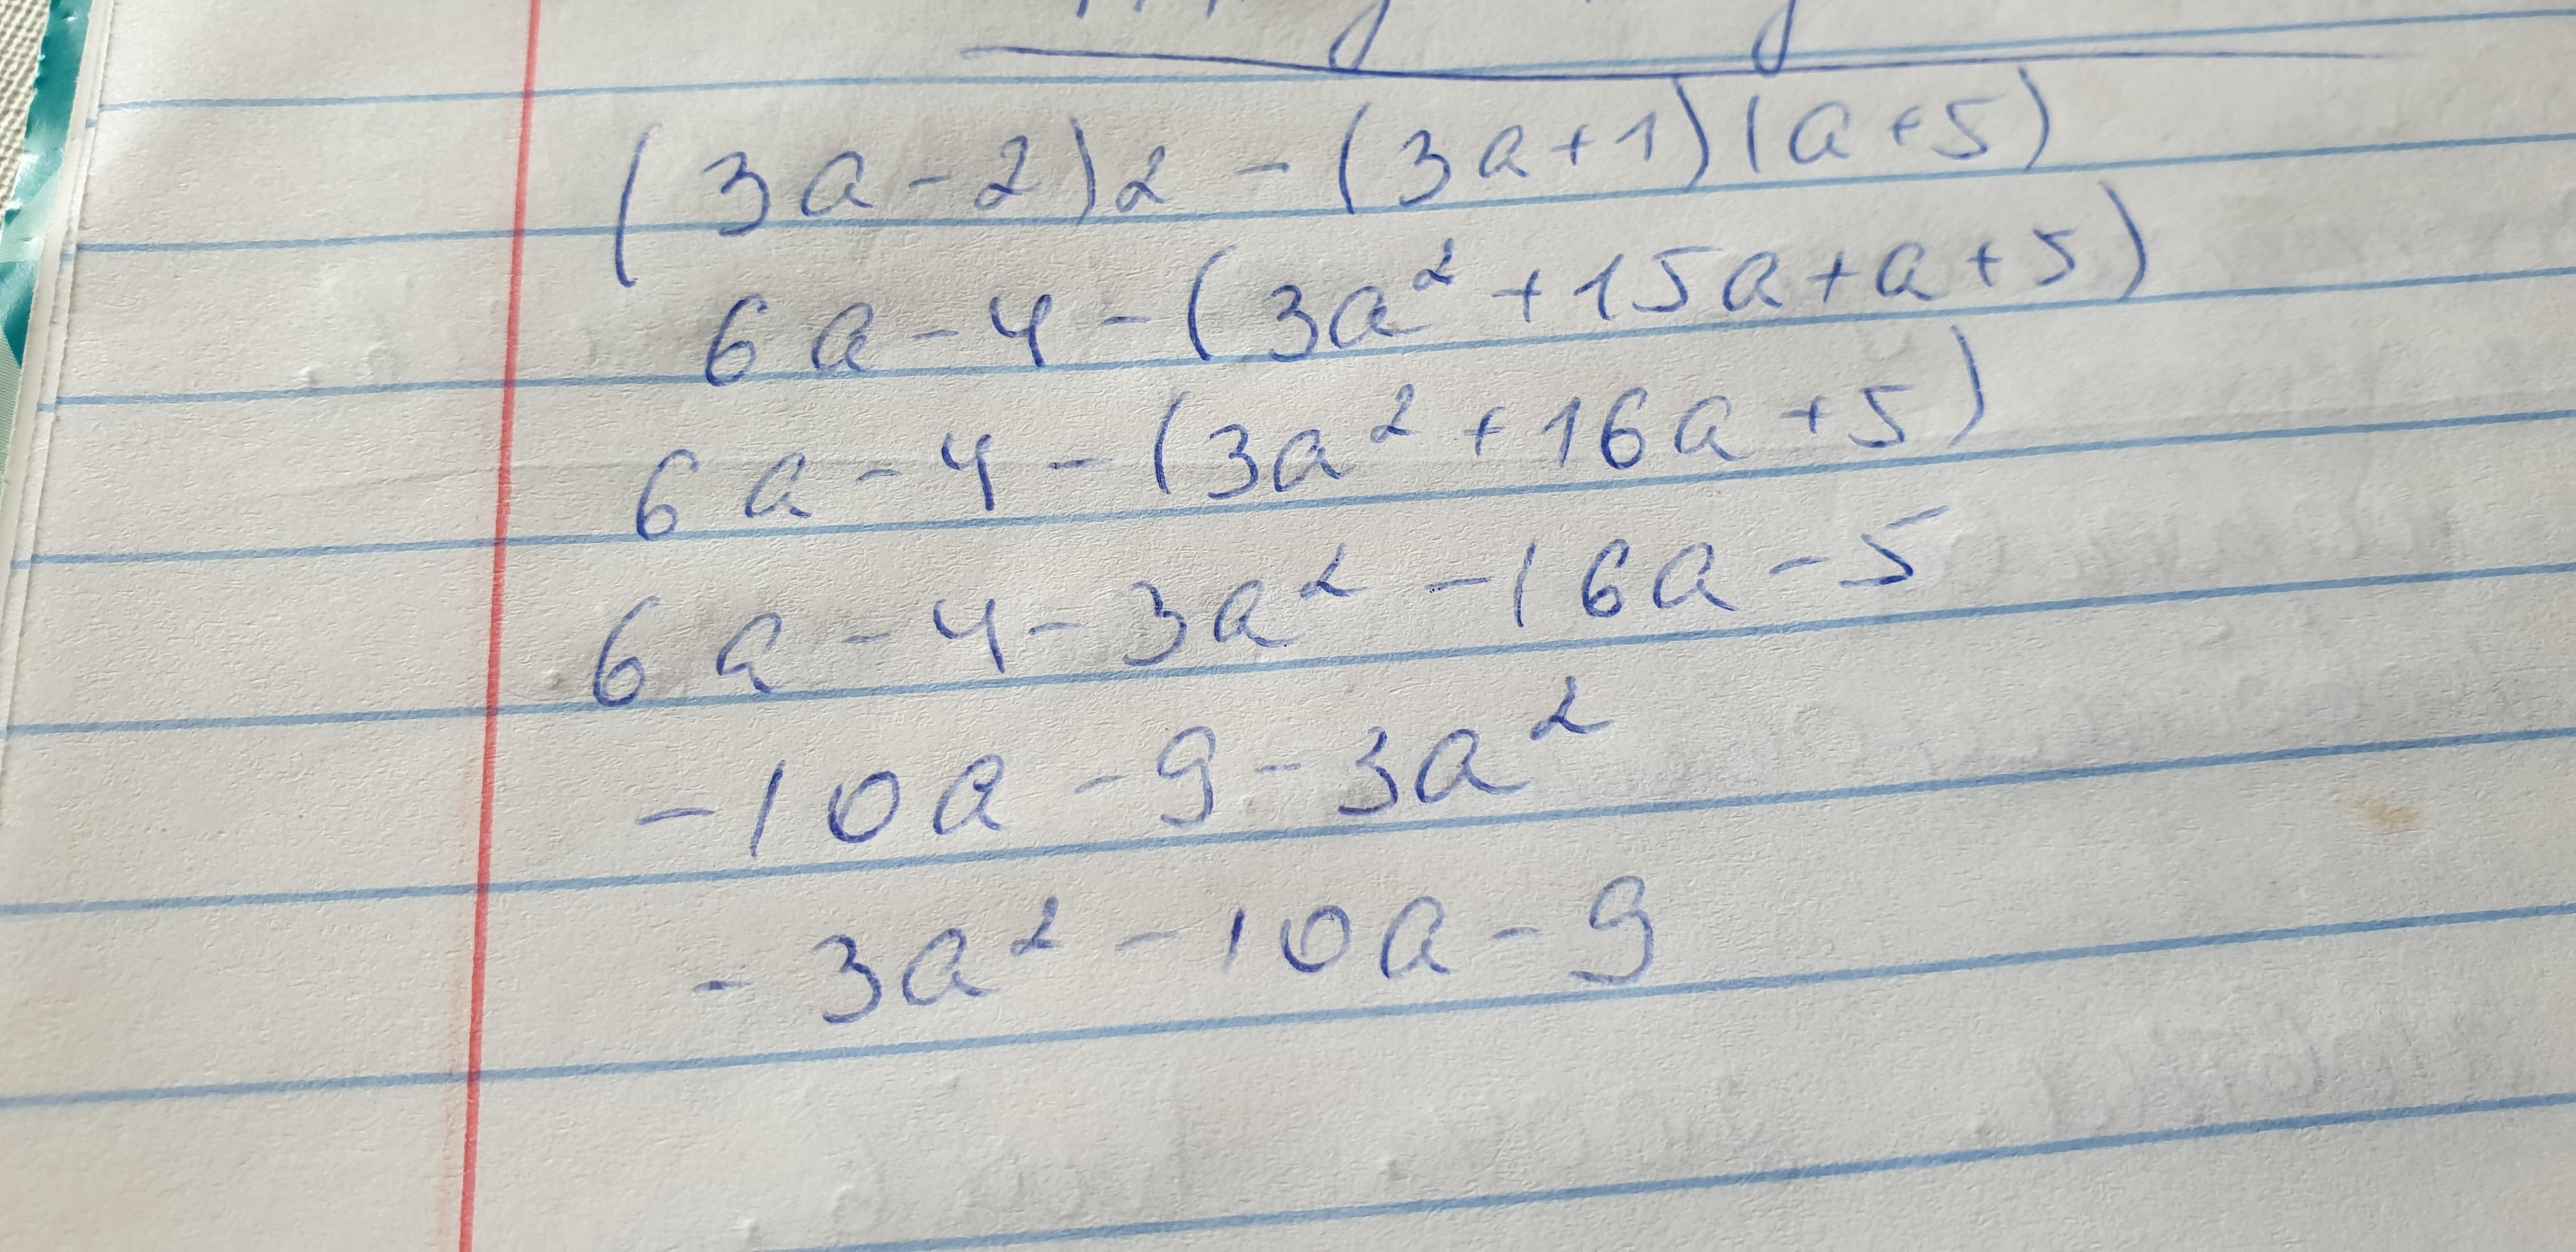 (3a-2)2-(3a+1)(a+5)
6a-4-(3a²+15a+a+5)
6a-4-(3a²+16a+5)
6a-4-3a²-16a-5
-10a-9-3a²
-3a²-10a-9